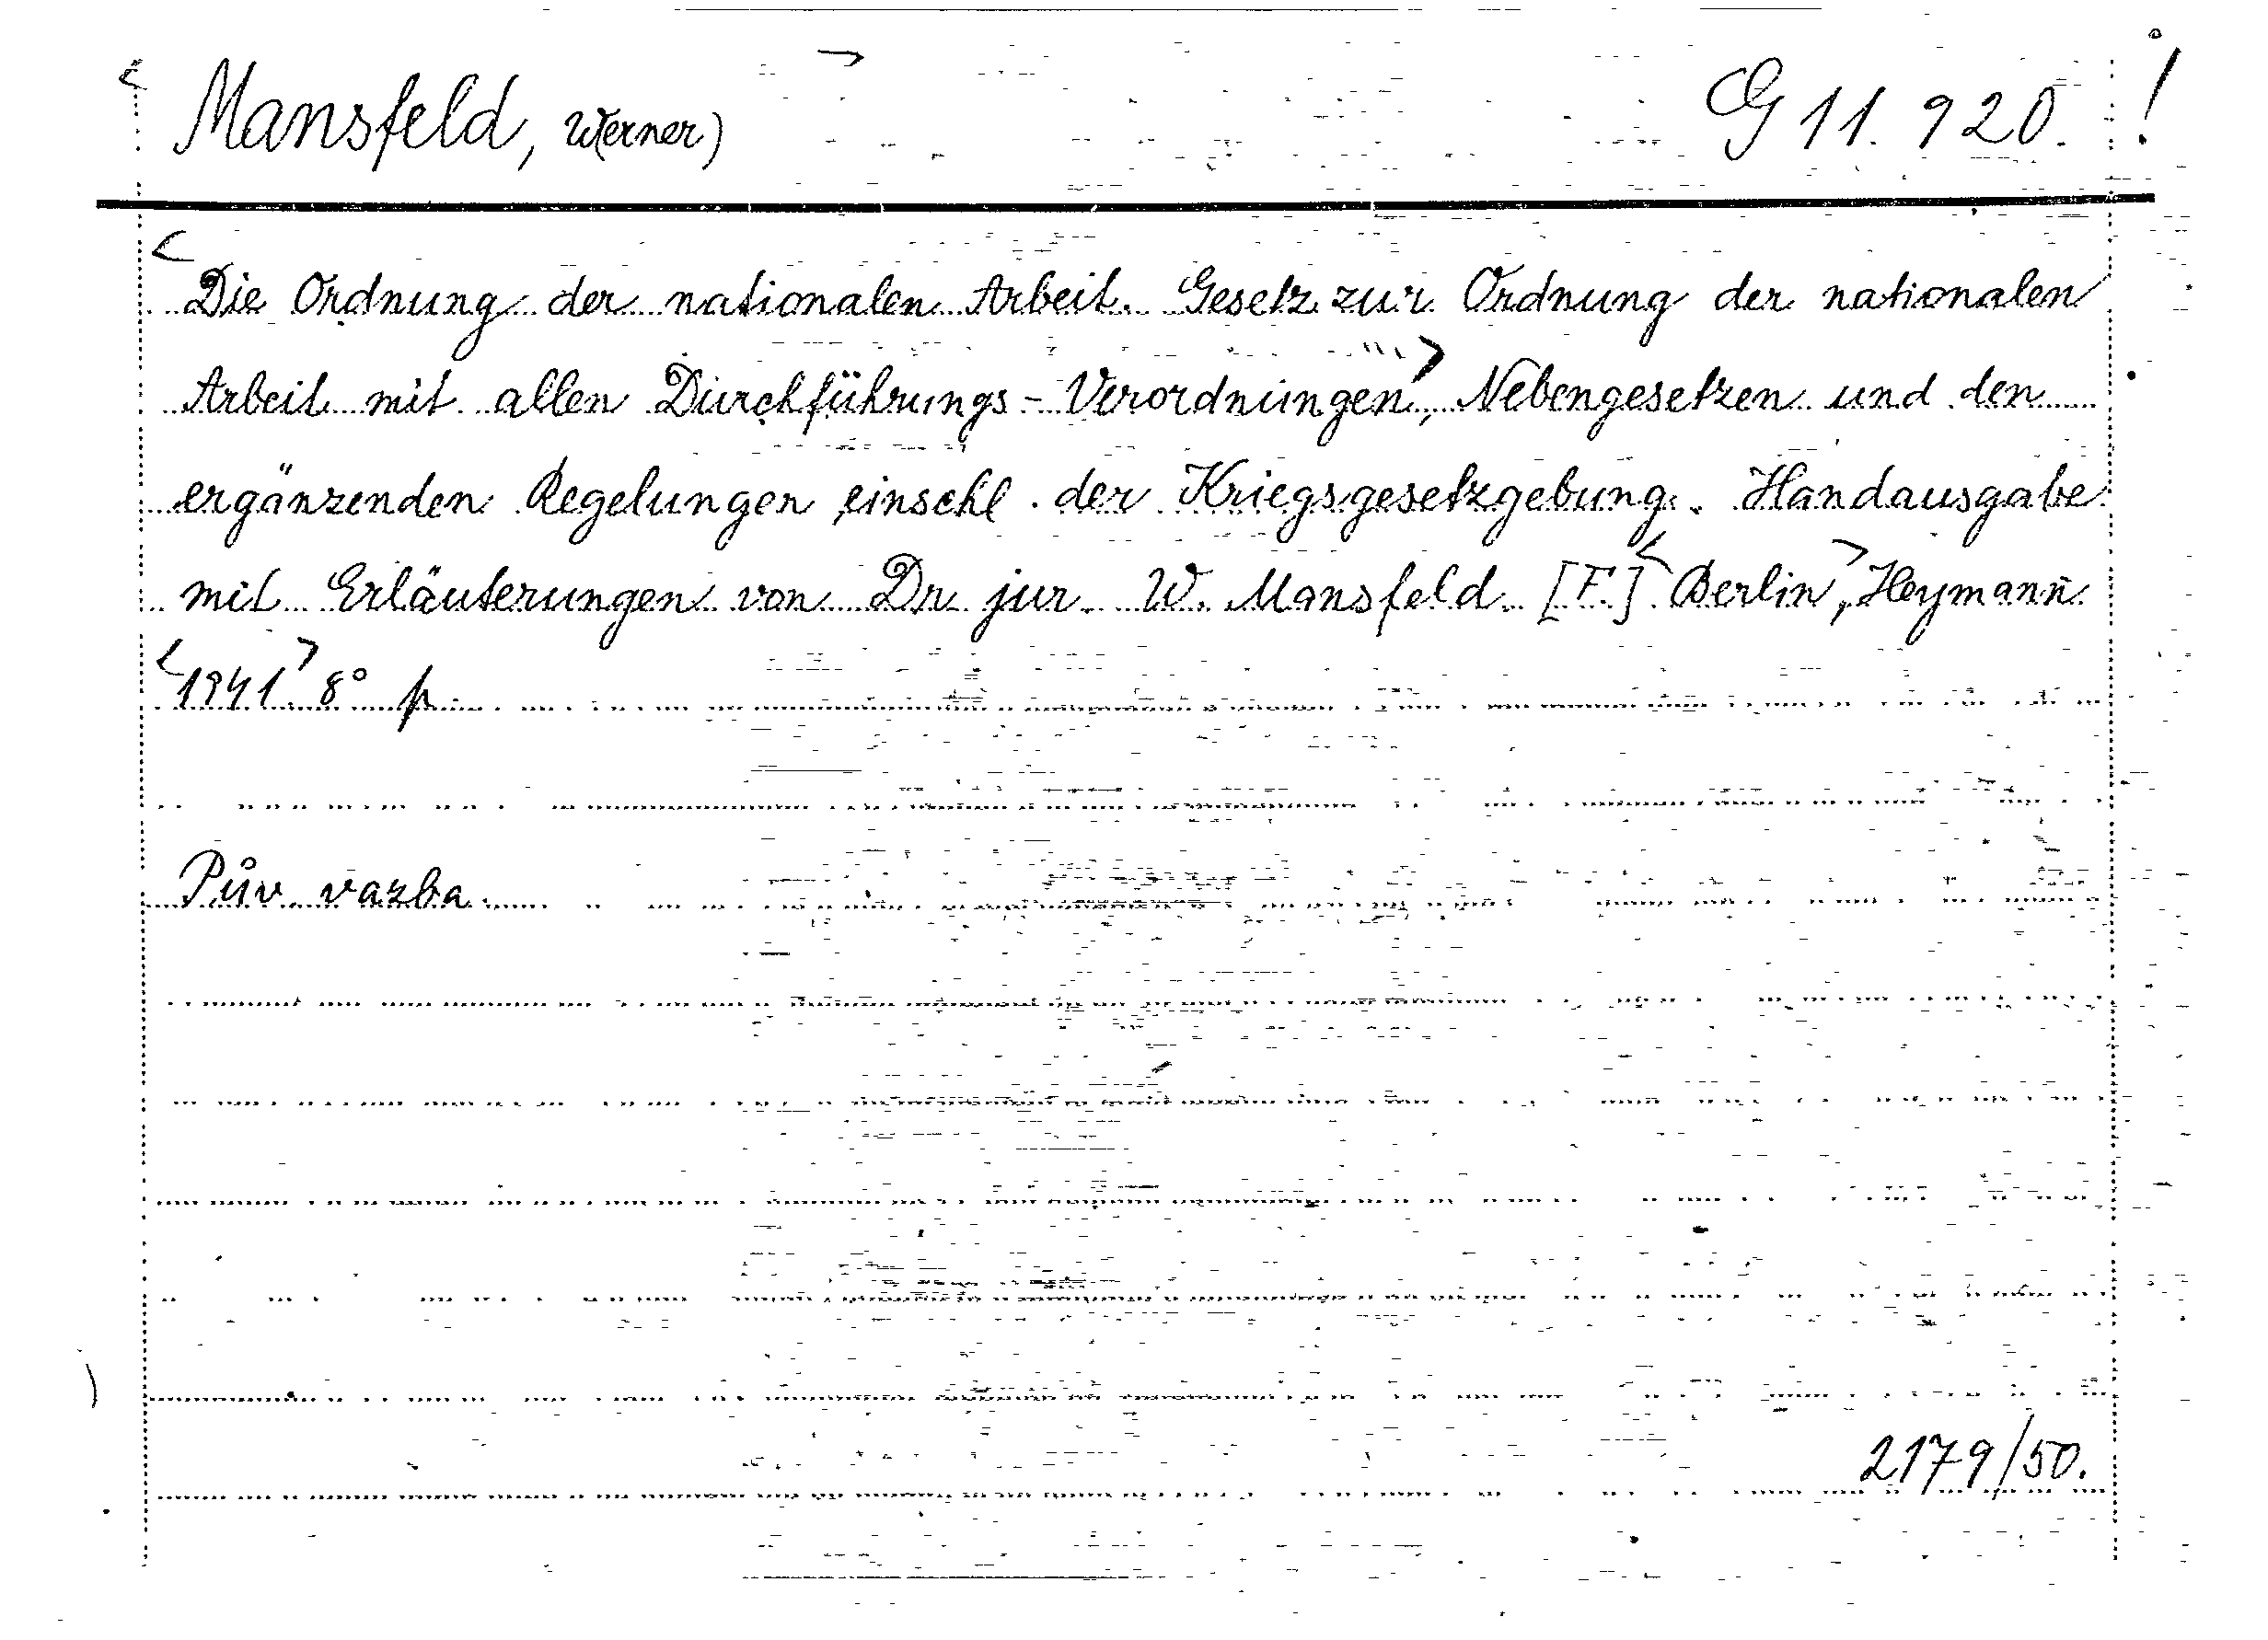 Mansfeld, W(erner) G 11.920. !
Die Ordnung der nationalen Arbeit. Gesetz zur Ordnung der nationalen
Arbeit mit allen Durchführungs-Verordnungen, Nebengesetzen und den
ergänzenden Regelungen einschl. der Kriegsgesetzgebung. Handausgabe
mit Erläuterungen von Dr jur. W. Mansfeld [F.] Berlin, Heymann
1941. 8° p.
Pův. vazba.
2179/50.